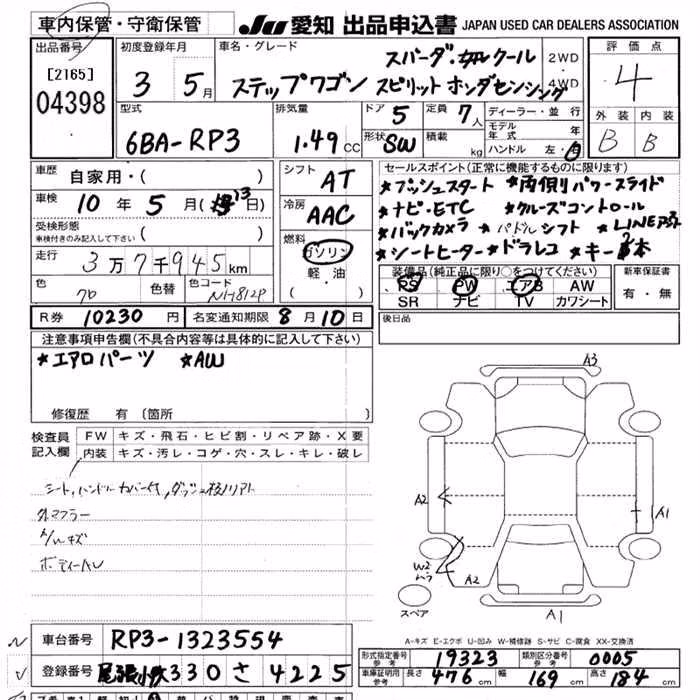 車内保管・守衛保管 JU 愛知 出品申込書 JAPAN USED CAR DEALERS ASSOCIATION
出品番号 初度登録年月 車名・グレード 評価点
[2165] スパーダ・クール 2WD
04398 3 5月 ステップワゴン スピリット ホンダセンシング 4WD 4
型式 排気量 ドア 5 定員 7人 ディーラー・並行 外装 内装
6BA-RP3 1.49 CC 形状 SW 積載 kg モデル年式 年 B B
ハンドル 左・右
車歴 自家用・( ) シフト AT セールスポイント(正常に機能するものに限ります)
車検 10年 5月 (13日) 冷房 AAC ★プッシュスタート ★両側パワースライド
受検形態 ( ) ★ナビ・ETC ★クルーズコントロール
車検付きのみ記入して下さい 燃料 ★バックカメラ ★パドルシフト
走行 3万7千945km ガソリン ★シートヒーター ★ドラレコ ★キー2本
色 色替 色コード 軽・油 装備品(純正品に限り○をつけてください) 新車保証書
NH812P ・( ) PS PW エアB AW 有・無
SR ナビ TV カワシート
R券 10230円 名変通知期限 8月10日 後日品
注意事項申告欄(不具合内容等は具体的に記入して下さい)
★エアロパーツ ★AW
修復歴 有 〔箇所 〕
検査員記入欄 FW キズ・飛石・ヒビ割・リペア跡・X要
内装 キズ・汚レ・コゲ・穴・スレ・キレ・破レ
シート,ハンドルカバー付,ダッシュ
外マフラー
A/Wキズ
A3
A2
A1
W2
A2
スペア
A1
A-キズ E-エクボ U-凹み W-補修跡 S-サビ C-腐食 XX-交換済
車台番号 RP3-1323554 形式指定番号 参考 19323 類別区分番号 参考 0005
登録番号 尾張小牧 330 さ 4225 車庫証明用 参考 長さ 476cm 幅 169cm 高さ 184cm